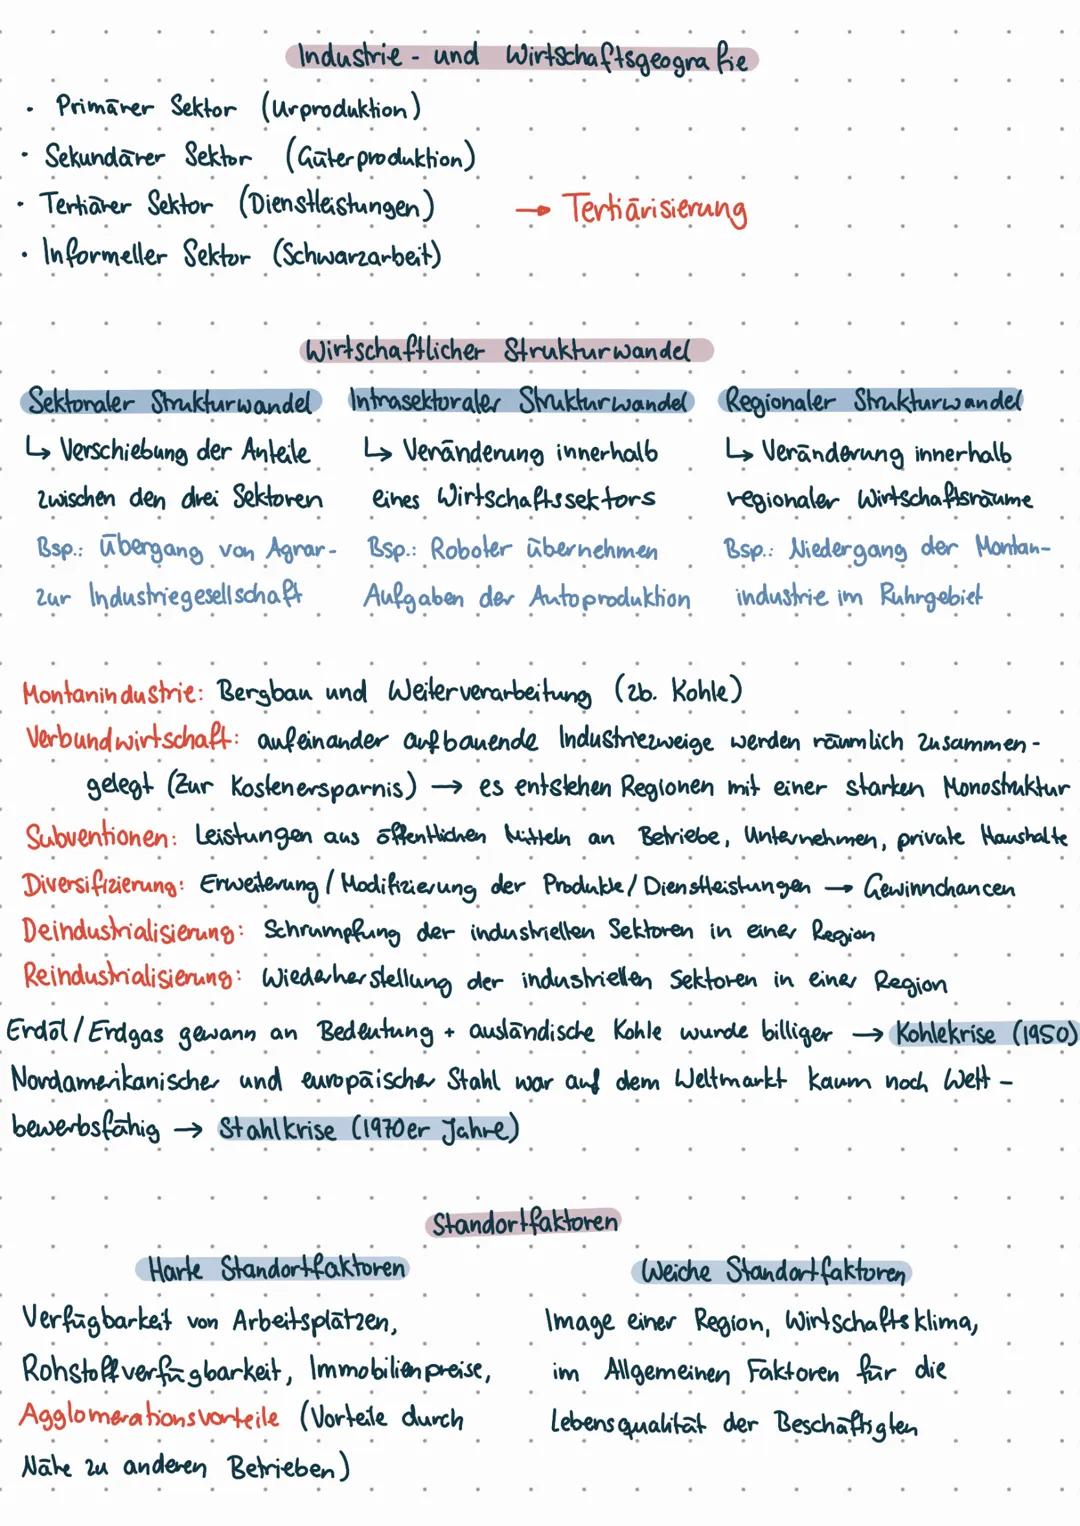 Industrie - und Wirtschaftsgeografie
· Primärer Sektor (Urproduktion)
· Sekundärer Sektor (Güterproduktion)
· Tertiärer Sektor (Dienstleistungen) → Tertiärisierung
· Informeller Sektor (Schwarzarbeit)
Wirtschaftlicher Strukturwandel
Sektoraler Strukturwandel
↳ Verschiebung der Anteile
zwischen den drei Sektoren
Bsp.: Übergang von Agrar-
zur Industriegesellschaft
Intrasektoraler Strukturwandel
↳ Veränderung innerhalb
eines Wirtschaftssektors
Bsp.: Roboter übernehmen
Aufgaben der Autoproduktion
Regionaler Strukturwandel
↳ Veränderung innerhalb
regionaler Wirtschaftsräume
Bsp.: Niedergang der Montan-
industrie im Ruhrgebiet
Montanindustrie: Bergbau und Weiterverarbeitung (zb. Kohle)
Verbundwirtschaft: aufeinander aufbauende Industriezweige werden räumlich zusammen-
gelegt (Zur Kostenersparnis) → es entstehen Regionen mit einer starken Monostruktur
Subventionen: Leistungen aus öffentlichen Mitteln an Betriebe, Unternehmen, private Haushalte
Diversifizierung: Erweiterung / Modifizierung der Produkte / Dienstleistungen → Gewinnchancen
Deindustrialisierung: Schrumpfung der industriellen Sektoren in einer Region
Reindustrialisierung: Wiederherstellung der industriellen Sektoren in einer Region
Erdöl / Erdgas gewann an Bedeutung + ausländische Kohle wurde billiger → Kohlekrise (1950)
Nordamerikanischer und europäischer Stahl war auf dem Weltmarkt kaum noch Wett-
bewerbsfähig → Stahlkrise (1970er Jahre)
Standortfaktoren
Harte Standortfaktoren
Verfügbarkeit von Arbeitsplätzen,
Rohstoffverfügbarkeit, Immobilienpreise,
Agglomerationsvorteile (Vorteile durch
Nähe zu anderen Betrieben)
Weiche Standortfaktoren
Image einer Region, Wirtschaftsklima,
im Allgemeinen Faktoren für die
Lebensqualität der Beschäftigten